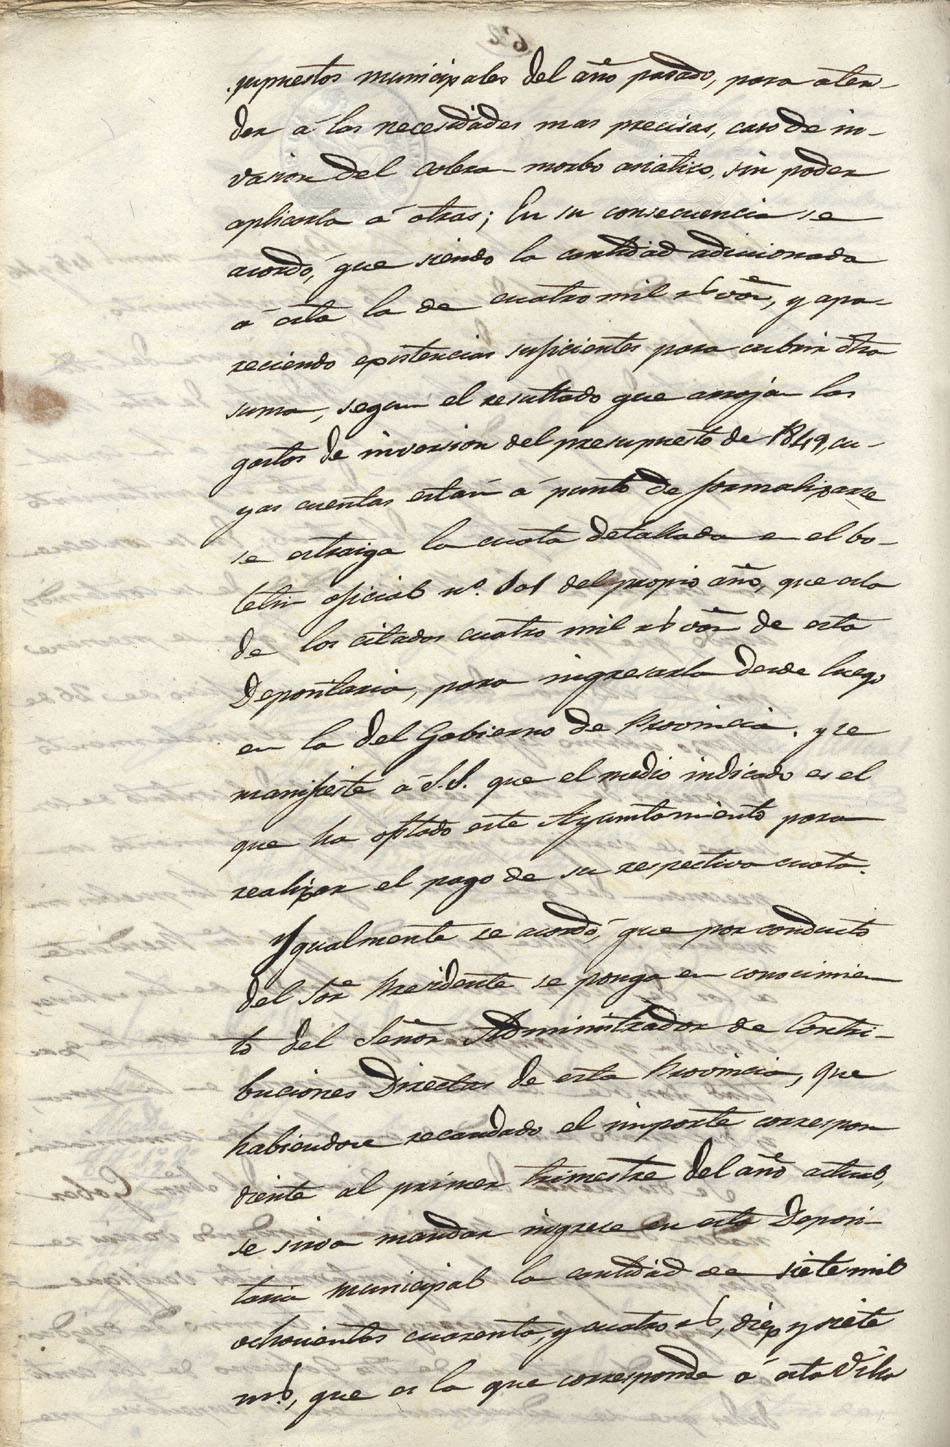 supuestos municipales del año pasado, para aten-
der á las necesidades mas precisas, caso de in-
vasion del colera-morbo asiatico, sin poder
aplicarla á otras; En su consecuencia se
acordó, que siendo la cantidad adicionada
á esta la de cuatro mil rs von, y apa-
reciendo existencias suficientes para cubrir dha
suma, segun el resultado que arrojan los
gastos de inversion del presupuesto de 1849, cu-
yas cuentas estan á punto de formalizarse
se estraiga la cuota detallada en el bo-
letin oficial nº. 101 del propio año, que es la
de los citados cuatro mil rs von de esta
Depositaria, para ingresarla desde luego
en la del Gobierno de Provincia, y se
manifieste á S.S. que el medio indicado es el
que ha optado este Ayuntamiento para
realizar el pago de su respectiva cuota.
Ygualmente se acordó, que por conducto
del Sor Presidente se ponga en conocimien
to del Señor Administrador de Contri-
buciones Directas de esta Provincia, que
habiendose recaudado el importe correspon
diente al primer trimestre del año actual,
se sirva mandar ingrese en esta Deposi-
taria Municipal la cantidad de siete mil
ochocientos cuarenta, y cuatro rs, diez y siete
mrs, que es la que corresponde á esta Villa